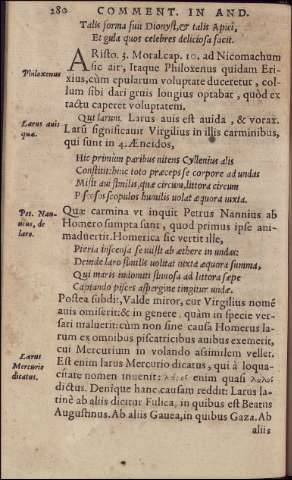 280 COMMENT. IN AND.
Talis forma fuit Dionysi, & talis Apici,
Et gula quos celebres deliciosa facit.
ARisto. 3. Moral. cap. 10. ad Nicomachum
sic air, Itaque Philoxenus quidam Eri-
Philoxenus
xius, cùm epularum voluptate duceretur, col-
lum sibi dari gruis longius optabat, quòd ex
tactu caperet voluptatem.
Qui larum. Larus auis est auida, & vorax.
Larus auis
quæ.
Larū significauit Virgilius in illis carminibus,
qui sunt in 4. Æneidos,
Hic primùm paribus nitens Cyllenius alis
Constitit: hinc toto præceps se corpore ad undas
Misit aui similis, quæ circum littora circum
Piscosos scopulos humilis uolat æquora iuxta.
Pet. Nan-
nius, de
laro.
Quæ carmina vt inquit Petrus Nannius ab
Homero sumpta sunt, quod primus ipse ani-
maduertit. Homerica sic vertit ille,
Pieria inscensa se misit ab æthere in undas:
Deinde laro similis uolitat iuxta æquora summa,
Qui maris indomiti sinuosa ad littora sæpe
Captando pisces aspergine tingitur undæ.
Postea subdit, Valde miror, cur Virgilius nomē
auis omiserit: & in genere, quàm in specie ver-
sari maluerit: cùm non sine causa Homerus la-
rum ex omnibus piscatricibus auibus exemerit,
cui Mercurium in volando assimilem vellet.
Larus
Mercurio
dicatus.
Est enim larus Mercurio dicatus, qui à loqua-
citate nomen inuenit: enim quasi
dictus. Denique hanc causam reddit: Larus la-
tinè ab aliis dicitur Fulica, in quibus est Beatus
Augustinus. Ab aliis Gauea, in quibus Gaza. Ab
aliis